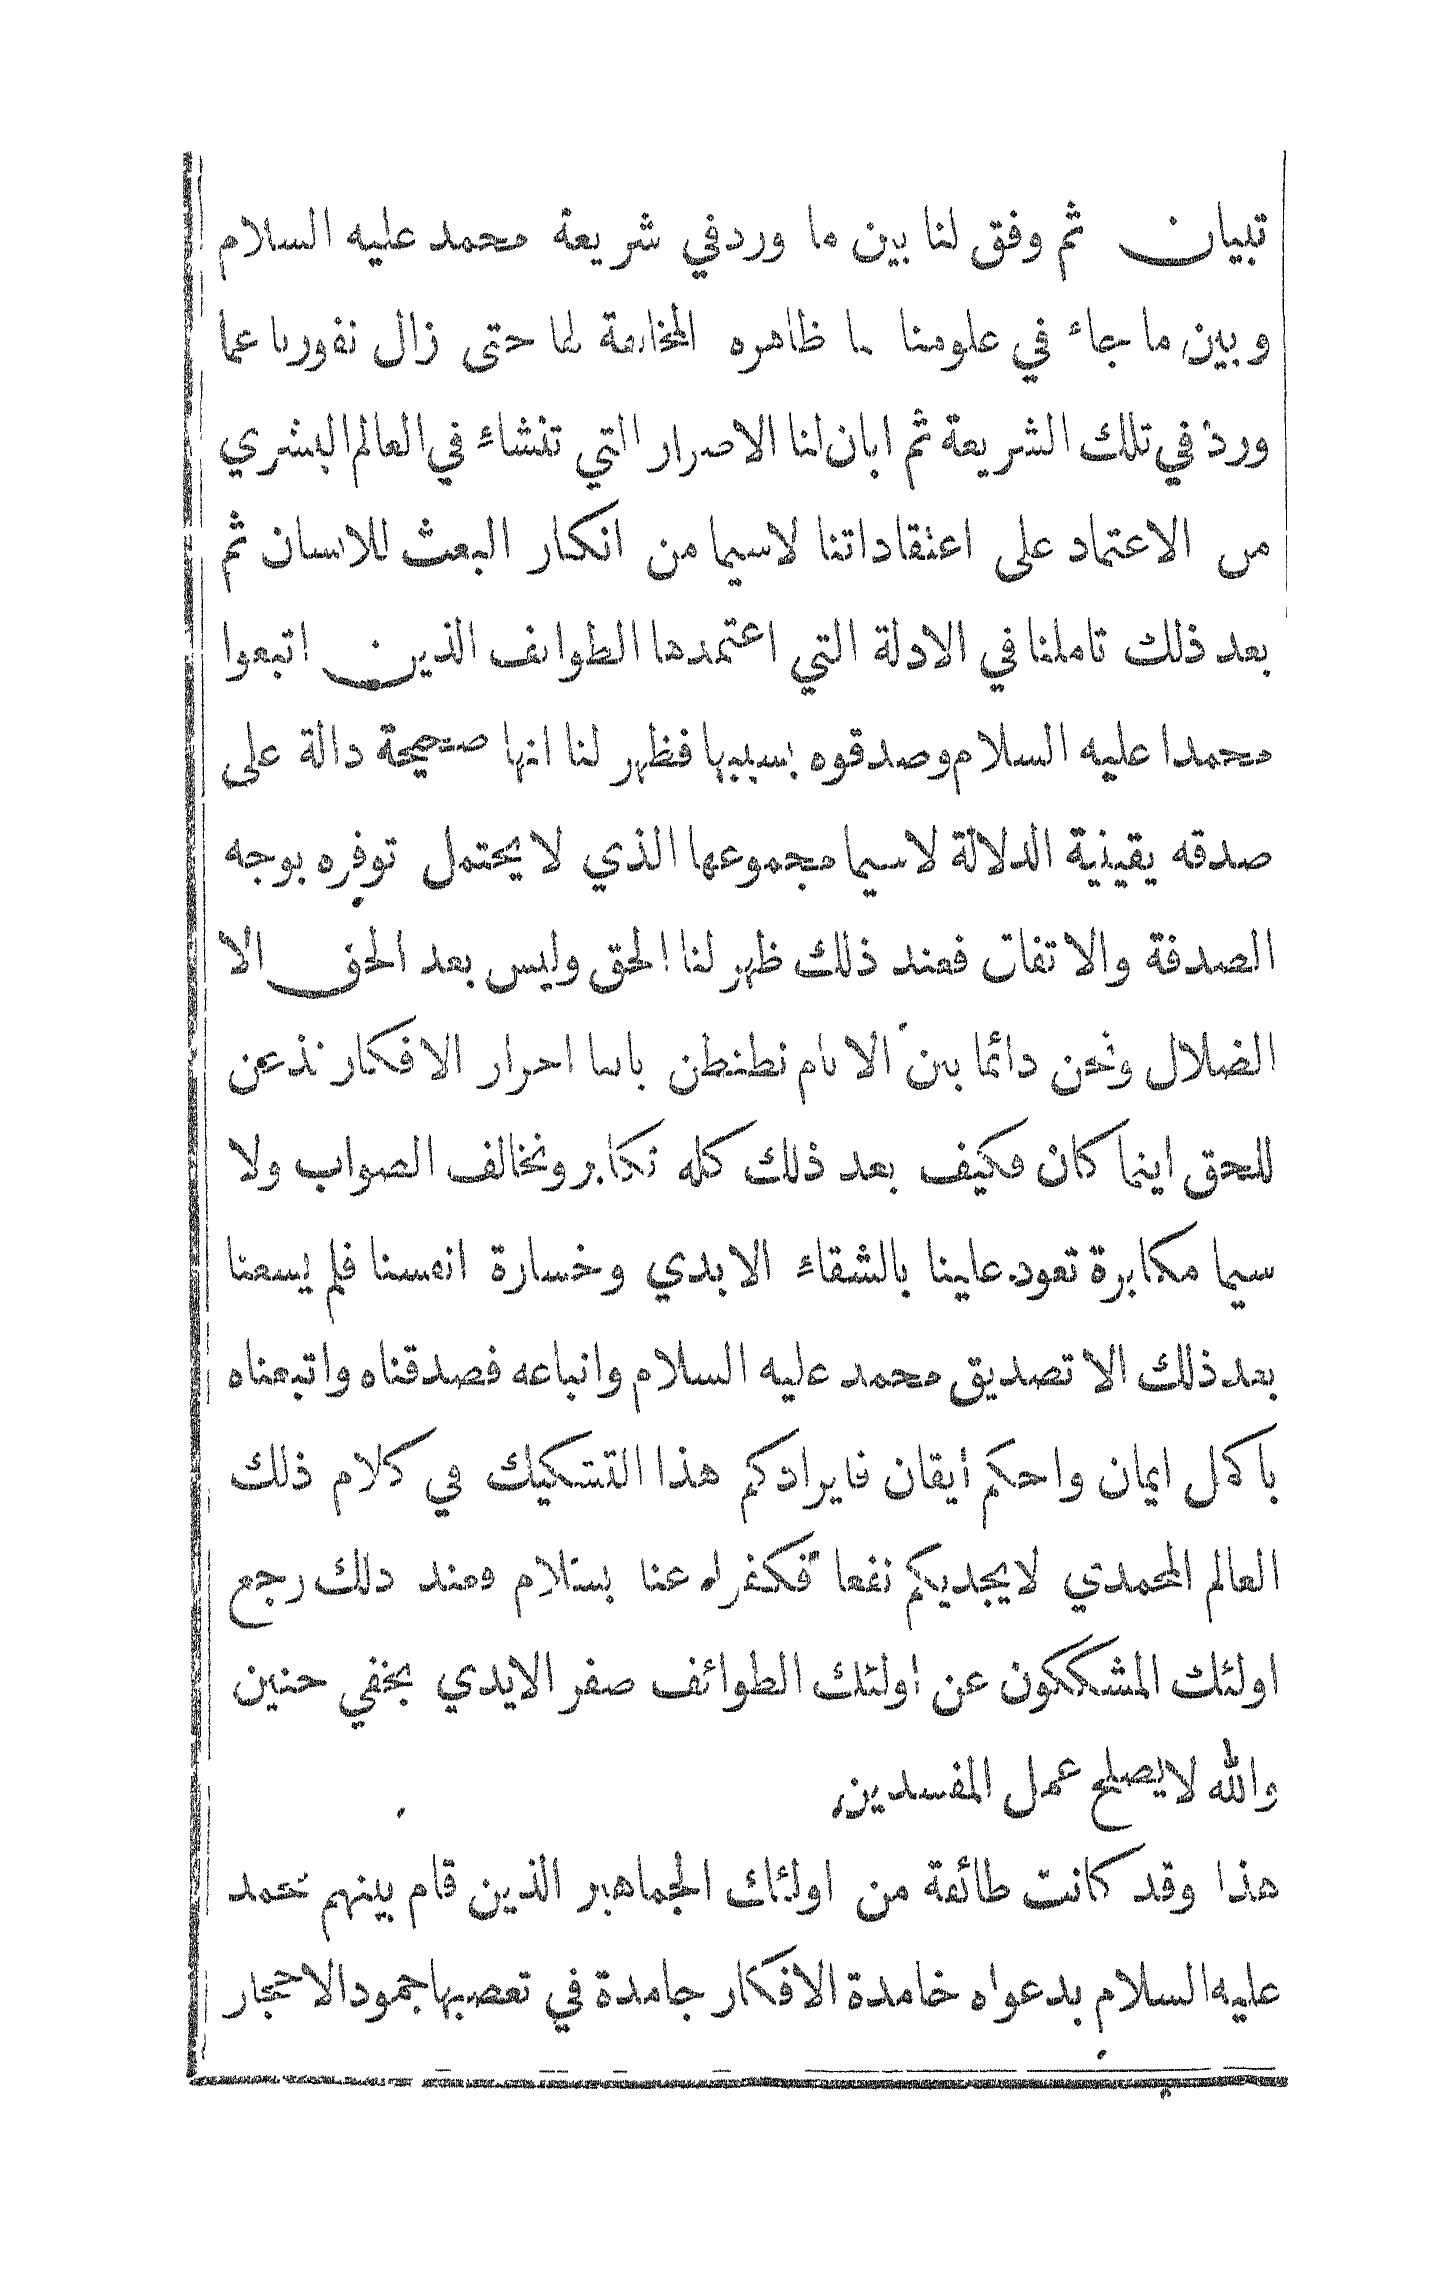 تبيان ثم وفق لنا بين ما ورد في شريعة محمد عليه السلام
وبين ما جاء في علومنا ما ظاهره المخالفة لها حتى زال نفورنا عما
ورد في تلك الشريعة ثم ابان لنا الاضرار التي تنشاء في العالم البشري
من الاعتماد على اعتقاداتنا لاسيما من انكار البعث للانسان ثم
بعد ذلك تاملنا في الادلة التي اعتمدها الطوائف الذين اتبعوا
محمدا عليه السلام وصدقوه بسببها فظهر لنا انها صحيحة دالة على
صدقه يقينية الدلالة لاسيما مجموعها الذي لا يحتمل توفره بوجه
الصدفة والاتفاق فعند ذلك ظهر لنا الحق وليس بعد الحق الا
الضلال ونحن دائما بين الانام نطنطن باننا احرار الافكار نذعن
للحق اينما كان فكيف بعد ذلك كله نكابر ونخالف الصواب ولا
سيما مكابرة تعود علينا بالشقاء الابدي وخسارة انفسنا فلم يسعنا
بعد ذلك الا تصديق محمد عليه السلام واتباعه فصدقناه واتبعناه
باكمل ايمان واحكم أيقان فايرادكم هذا التشكيك في كلام ذلك
العالم المحمدي لا يجديكم نفعا فكفراه عنا بسلام وعند ذلك رجع
اولئك المشككون عن أولئك الطوائف صفر الايدي بخفي حنين
والله لا يصلح عمل المفسدين
هذا وقد كانت طائفة من اولئك الجماهير الذين قام بينهم محمد
عليه السلام بدعواه خامدة الافكار جامدة في تعصبها جمود الاحجار